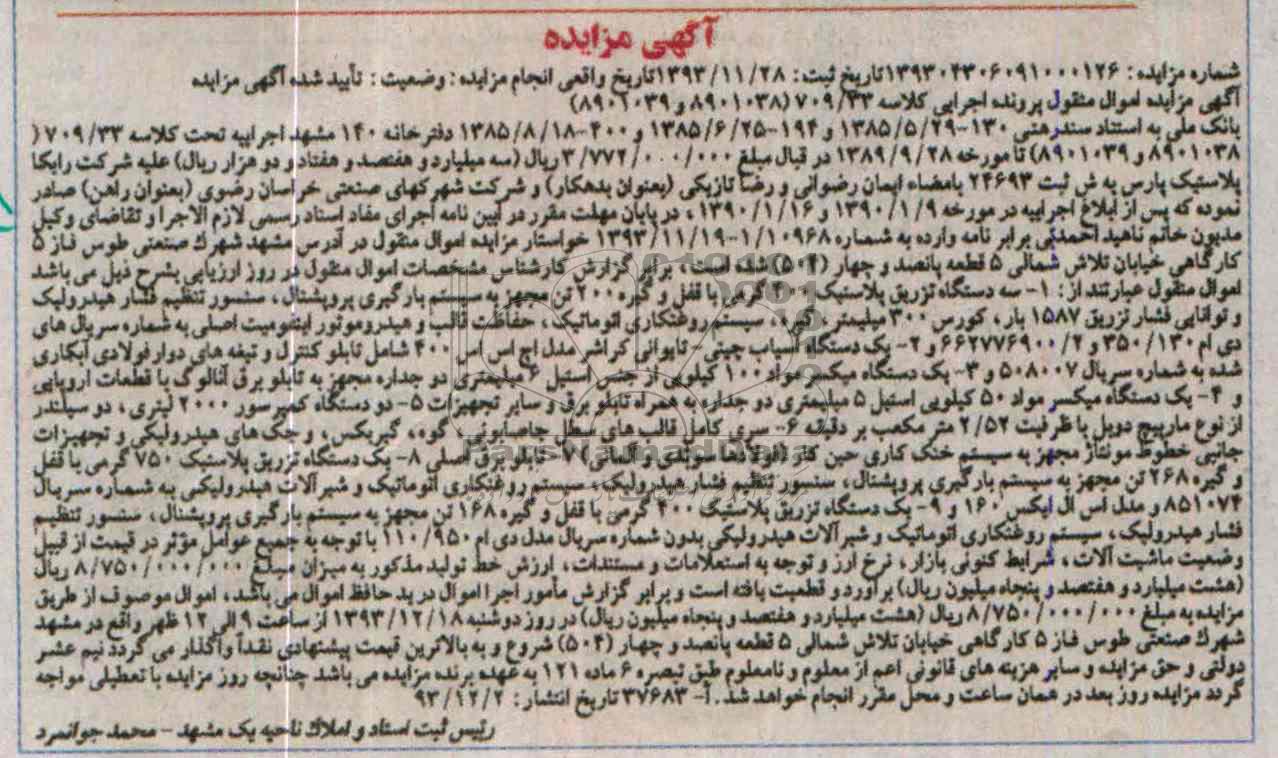 آگهی مزایده
شماره مزایده: ۱۳۹۳۰۴۳۰۶۰۹۱۰۰۰۱۲۶ تاریخ ثبت: ۱۳۹۳/۱۱/۲۸ تاریخ واقعی انجام مزایده: وضعیت: تأیید شده آگهی مزایده
آگهی مزایده اموال منقول پرونده اجرایی کلاسه ۷۰۹/۳۳ (۸۹۰۱۰۳۸ و ۸۹۰۱۰۳۹)
بانک ملی به استناد سندرهنی ۱۳۰-۱۳۸۵/۵/۲۹ و ۱۹۴-۱۳۸۵/۶/۲۵ و ۴۰۰-۱۳۸۵/۸/۱۸ دفترخانه ۱۴۰ مشهد اجراییه تحت کلاسه ۷۰۹/۳۳ (
۸۹۰۱۰۳۸ و ۸۹۰۱۰۳۹) تا مورخه ۱۳۸۹/۹/۲۸ در قبال مبلغ ۳/۷۷۲/۰۰۰/۰۰۰ ریال (سه میلیارد و هفتصد و هفتاد و دو هزار ریال) علیه شرکت رایکا
پلاستیک پارس به ش ثبت ۲۴۶۹۳ بامضاء ایمان رضوانی و رضا تازیکی (بعنوان بدهکار) و شرکت شهرکهای صنعتی خراسان رضوی (بعنوان راهن) صادر
نموده که پس از ابلاغ اجراییه در مورخه ۱۳۹۰/۱/۹ و ۱۳۹۰/۱/۱۶ ، در پایان مهلت مقرر در آیین نامه اجرای مفاد اسناد رسمی لازم الاجرا و تقاضای وکیل
مدیون خانم ناهید احمدنی برابر نامه وارده به شماره ۱/۱۰۹۶۸-۱۳۹۳/۱۱/۱۹ خواستار مزایده اموال منقول در آدرس مشهد شهرک صنعتی طوس فاز ۵
کارگاهی خیابان تلاش شمالی ۵ قطعه پانصد و چهار (۵۰۴) شده است، برابر گزارش کارشناس مشخصات اموال منقول در روز ارزیابی بشرح ذیل می باشد
اموال منقول عبارتند از: ۱- سه دستگاه تزریق پلاستیک گرمی با قفل و گیره ۲۰۰ تن مجهز به سیستم بارگیری پروپشنال، سنسور تنظیم فشار هیدرولیک
و توانایی فشار تزریق ۱۵۸۷ بار، کورس ۳۰۰ میلیمتر، گوه، سیستم روغنکاری اتوماتیک، حفاظت قالب و هیدروموتور اصلی به شماره سریال های
دی ام ۳۵۰/۱۳۰ و ۶۶۲۷۷۶۹۰۰/۲ و ۲- یک دستگاه آسیاب چینی- تایوانی کراشر مدل اچ اس اس ۴۰۰ شامل تابلو کنترل و تیغه های دوار فولادی آبکاری
شده به شماره سریال ۵۰۸۰۰۷ و ۳- یک دستگاه میکسر مواد ۱۰۰ کیلویی از جنس استیل ۶ میلیمتری دو جداره مجهز به تابلو برق آنالوگ با قطعات اروپایی
و ۴- یک دستگاه میکسر مواد ۵۰ کیلویی استیل ۵ میلیمتری دو جداره به همراه تابلو برق و سایر تجهیزات ۵- دو دستگاه کمپرسور ۲۰۰۰ لیتری، دو سیلندر
از نوع مارپیچ دوبل با ظرفیت ۲/۵۲ متر مکعب بر دقیقه ۶- سری کامل قالب های سطل جاصابونی، گوه، گیربکس، و جک های هیدرولیکی و تجهیزات
جانبی خطوط مونتاژ مجهز به سیستم خنک کاری حین کار (فولادها سوئدی و آلمانی) ۷- تابلو برق اصلی ۸- یک دستگاه تزریق پلاستیک ۷۵۰ گرمی با قفل
و گیره ۲۶۸ تن مجهز به سیستم بارگیری پروپشنال، سنسور تنظیم فشار هیدرولیک، سیستم روغنکاری اتوماتیک و شیرآلات هیدرولیکی به شماره سریال
۸۵۱۰۷۴ و مدل اس ال ایکس ۱۶۰ و ۹- یک دستگاه تزریق پلاستیک ۴۰۰ گرمی با قفل و گیره ۱۶۸ تن مجهز به سیستم بارگیری پروپشنال، سنسور تنظیم
فشار هیدرولیک، سیستم روغنکاری اتوماتیک و شیرآلات هیدرولیکی بدون شماره سریال مدل دی ام ۱۱۰/۹۵۰ با توجه به جمیع عوامل مؤثر در قیمت از قبیل
وضعیت ماشین آلات، شرایط کنونی بازار، نرخ ارز و توجه به استعلامات و مستندات، ارزش خط تولید مذکور به میزان مبلغ ۸/۷۵۰/۰۰۰/۰۰۰ ریال
(هشت میلیارد و هفتصد و پنجاه میلیون ریال) برآورد و قطعیت یافته است و برابر گزارش مأمور اجرا اموال در ید حافظ اموال می باشد، اموال موصوف از طریق
مزایده به مبلغ ۸/۷۵۰/۰۰۰/۰۰۰ ریال (هشت میلیارد و هفتصد و پنجاه میلیون ریال) در روز دوشنبه ۱۳۹۳/۱۲/۱۸ از ساعت ۹ الی ۱۲ ظهر واقع در مشهد
شهرک صنعتی طوس فاز ۵ کارگاهی خیابان تلاش شمالی ۵ قطعه پانصد و چهار (۵۰۴) شروع و به بالاترین قیمت پیشنهادی نقداً واگذار می گردد نیم عشر
دولتی و حق مزایده و سایر هزینه های قانونی اعم از معلوم و نامعلوم طبق تبصره ۶ ماده ۱۲۱ به عهده برنده مزایده می باشد چنانچه روز مزایده با تعطیلی مواجه
گردد مزایده روز بعد در همان ساعت و محل مقرر انجام خواهد شد. آ- ۳۷۶۸۳ تاریخ انتشار: ۹۳/۱۲/۲
رئیس ثبت اسناد و املاک ناحیه یک مشهد - محمد جوانمرد